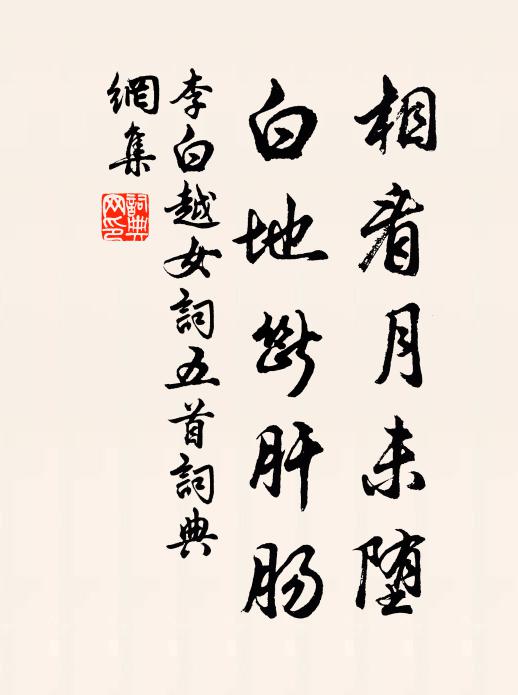 相看月未堕
白地断肝肠
李白越女詞五首詞典
網集
詞典
网印